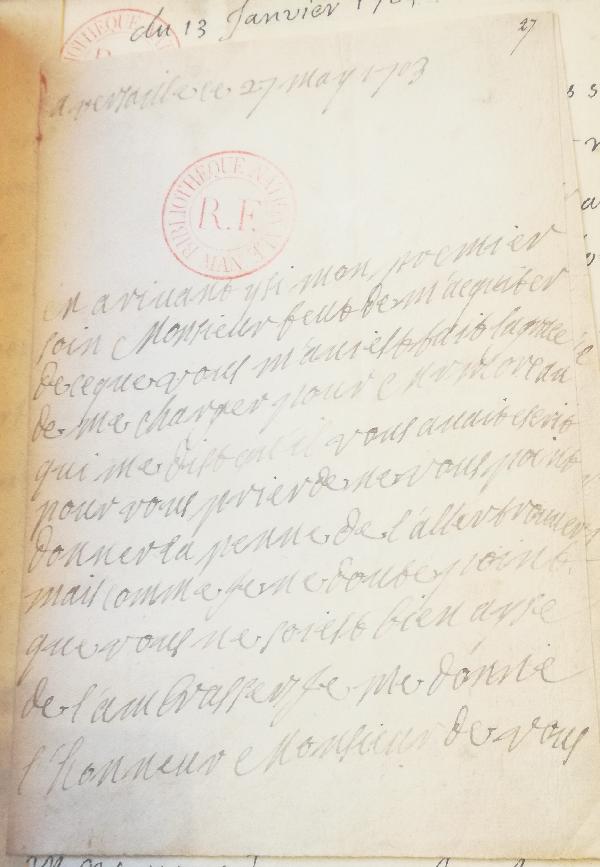 du 13 Janvier
27
a versaille ce 27 may 1703
BIBLIOTHEQUE NATIONALE MAN
R.F.
en arivant ysi mon premier
soin Monsieur feut de m'aquiter
de ceque vous m'aviest fait la grace
de me charger pour
qui me dist quil vous avait escrit
pour vous prier de ne vous point
donner la penne de l'aller trouver
mais comme je ne doute point
que vous ne soiest bien ayse
de l'ambrasser je me donne
l'honneur Monsieur de vous